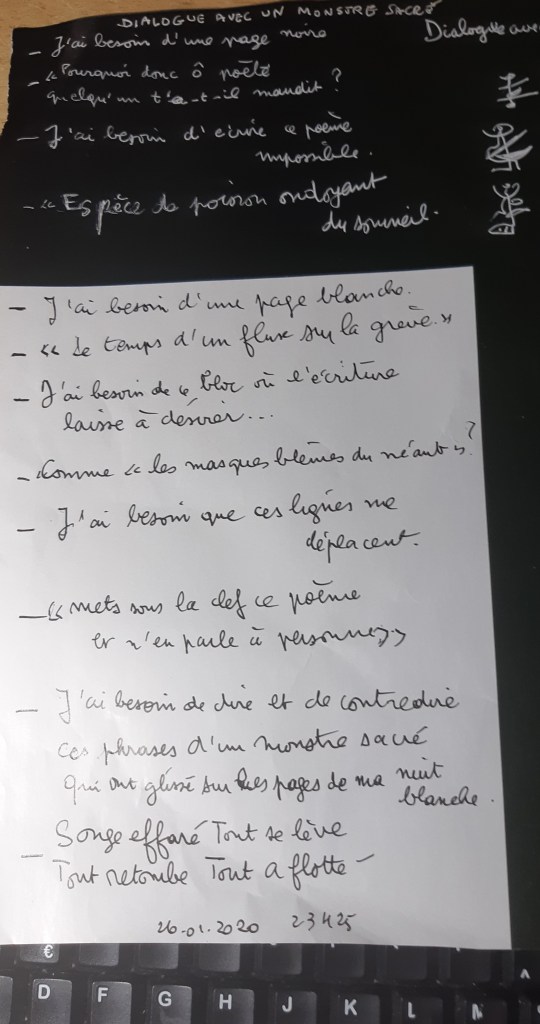 DIALOGUE AVEC UN MONSTRE SACRÉ
Dialogue ave
- J'ai besoin d'une page noire
- « Pourquoi donc ô poète
quelqu'un t'a-t-il maudit ?
- J'ai besoin d'écrire ce poème
impossible.
- « Espèce de poison ondoyant
du sommeil.
- J'ai besoin d'une page blanche.
- « Le temps d'un flux sur la grève. »
- J'ai besoin de ce bloc où l'écriture
laisse à désirer...
- Comme « les masques blêmes du néant » ?
- J'ai besoin que ces lignes me
déplacent.
- « Mets sous la clef ce poème
et n'en parle à personne »
- J'ai besoin de dire et de contredire
ces phrases d'un monstre sacré
qui ont glissé sur les pages de ma nuit
blanche.
- Songe effaré Tout se lève
Tout retombe Tout a flotté -
26.01.2020 23H25
€
D F G H J K L M